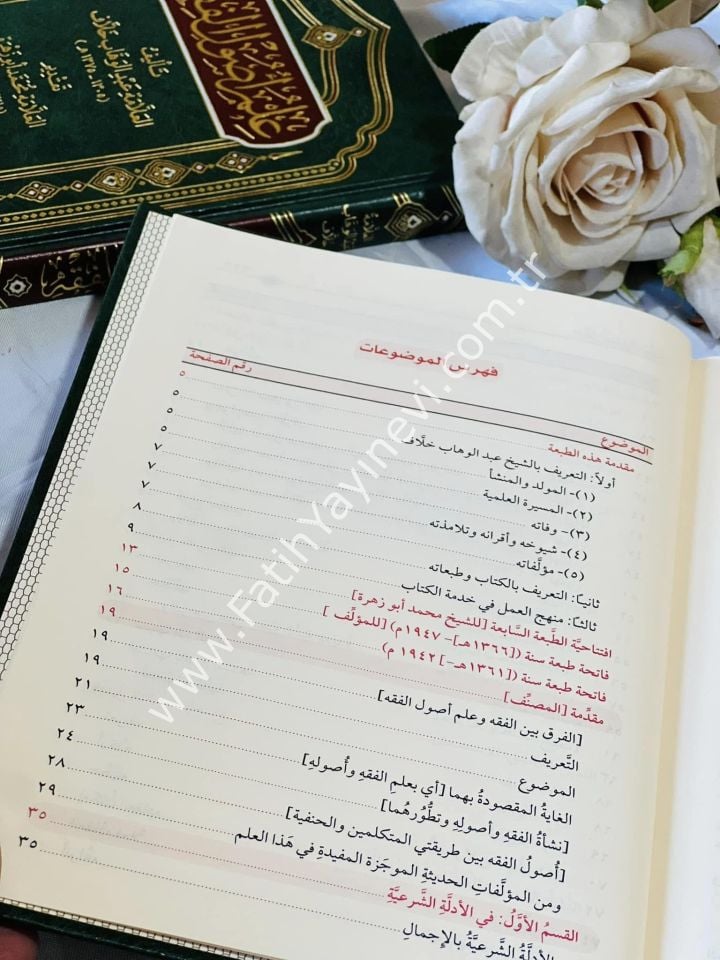 علم أصول الفقه
تأليف
العلامة عبد الوهاب خلاف
(١٣٠٥ - ١٣٧٥ هـ)
تقديم
فهرس الموضوعات
الموضوع رقم الصفحة
مقدمة هذه الطبعة ٥
أولاً: التعريف بالشيخ عبد الوهاب خلَّاف ٥
(١)- المولد والمنشأ ٥
(٢)- المسيرة العلمية ٥
(٣)- وفاته ٧
(٤)- شيوخه وأقرانه وتلامذته ٧
(٥)- مؤلَّفاته ٧
ثانيًا: التعريف بالكتاب وطبعاته ٨
ثالثًا: منهج العمل في خدمة الكتاب ٩
افتتاحيَّة الطَّبعة السَّابعة [للشيخ محمد أبو زهرة] ١٣
فاتحة طبعة سنة ([١٣٦٦هـ]- ١٩٤٧م) [للمؤلِّف] ١٥
فاتحة طبعة سنة ([١٣٦١هـ-] ١٩٤٢م) ١٦
مقدِّمة [المصنِّف] ١٩
[الفرق بين الفقه وعلم أصول الفقه] ١٩
التَّعريف ١٩
الموضوع ٢١
الغايةُ المقصودةُ بهما [أي بعلمِ الفقهِ وأُصولهِ] ٢٣
[نشأةُ الفقهِ وأصولِهِ وتطُّورُهُما] ٢٤
[أُصولُ الفقه بين طريقتي المتكلمين والحنفية] ٢٨
ومن المؤلَّفاتِ الحديثةِ الموجَزة المفيدةِ في هَذا العلم ٢٩
القسمُ الأوَّلُ: في الأدلَّةِ الشَّرعيَّةِ ٣٥
الأدلَّةُ الشَّرعيَّةُ بالإجمالِ ٣٥
www.FatihYayinevi.com.tr